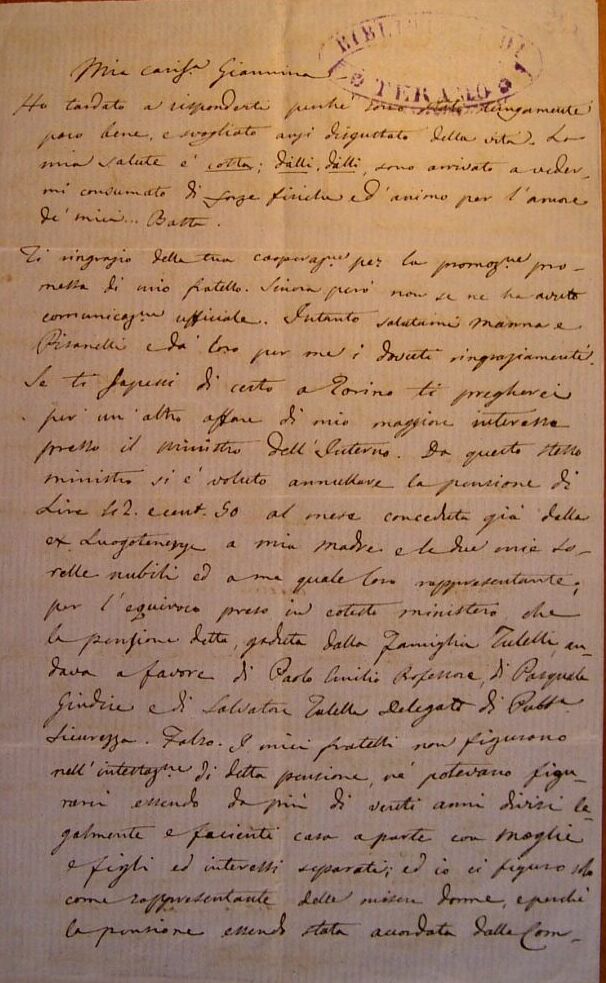 BIBLIOTECA DI
TERAMO
Mia cariss.ª Giannina
Ho tardato a risponderti perchè sono stato lungamente
poco bene, e svogliato anzi disgustato della vita. La
mia salute è cotta; dàlli, dàlli, sono arrivato a veder-
mi consumato di forze fisiche ed d'animo per l'amore
de' miei... Basta.
Ti ringrazio della tua cooperaz.ne per la promoz.ne pro-
messa di mio fratello. Sinora però non se ne ha avuto
comunicaz.ne ufficiale. Intanto salutami Manna e
Pisanelli e dà loro per me i dovuti ringraziamenti.
Se ti sapessi di certo a Torino ti pregherei
per un altro affare di mio maggiore interesse
presso il ministro dell'Interno. Da questo stesso
ministro si è voluto annullare la pensione di
Lire 42. e cent. 50 al mese conceduta già dalla
ex Luogotenenza a mia madre e le due mie so-
relle nubili ed a me quale loro rappresentante;
per l'equivoco preso in cotesto ministero che
la pensione detta, goduta dalla Famiglia Tulelli, an-
dava a favore di Paolo Emilio Professore, di Pasquale
Giudice e di Salvatore Tulelli Delegato di Pubb.ca
Sicurezza. Falso. I miei fratelli non figurono
nell'intestaz.ne di detta pensione, nè potevano figu-
rarvi essendo da più di venti anni divisi le-
galmente e facienti casa a parte con moglie
e figli ed interessi separati; ed io ci figuro solo
come rappresentante delle misere donne, e perchè
la pensione essendo stata accordata dalla Com-